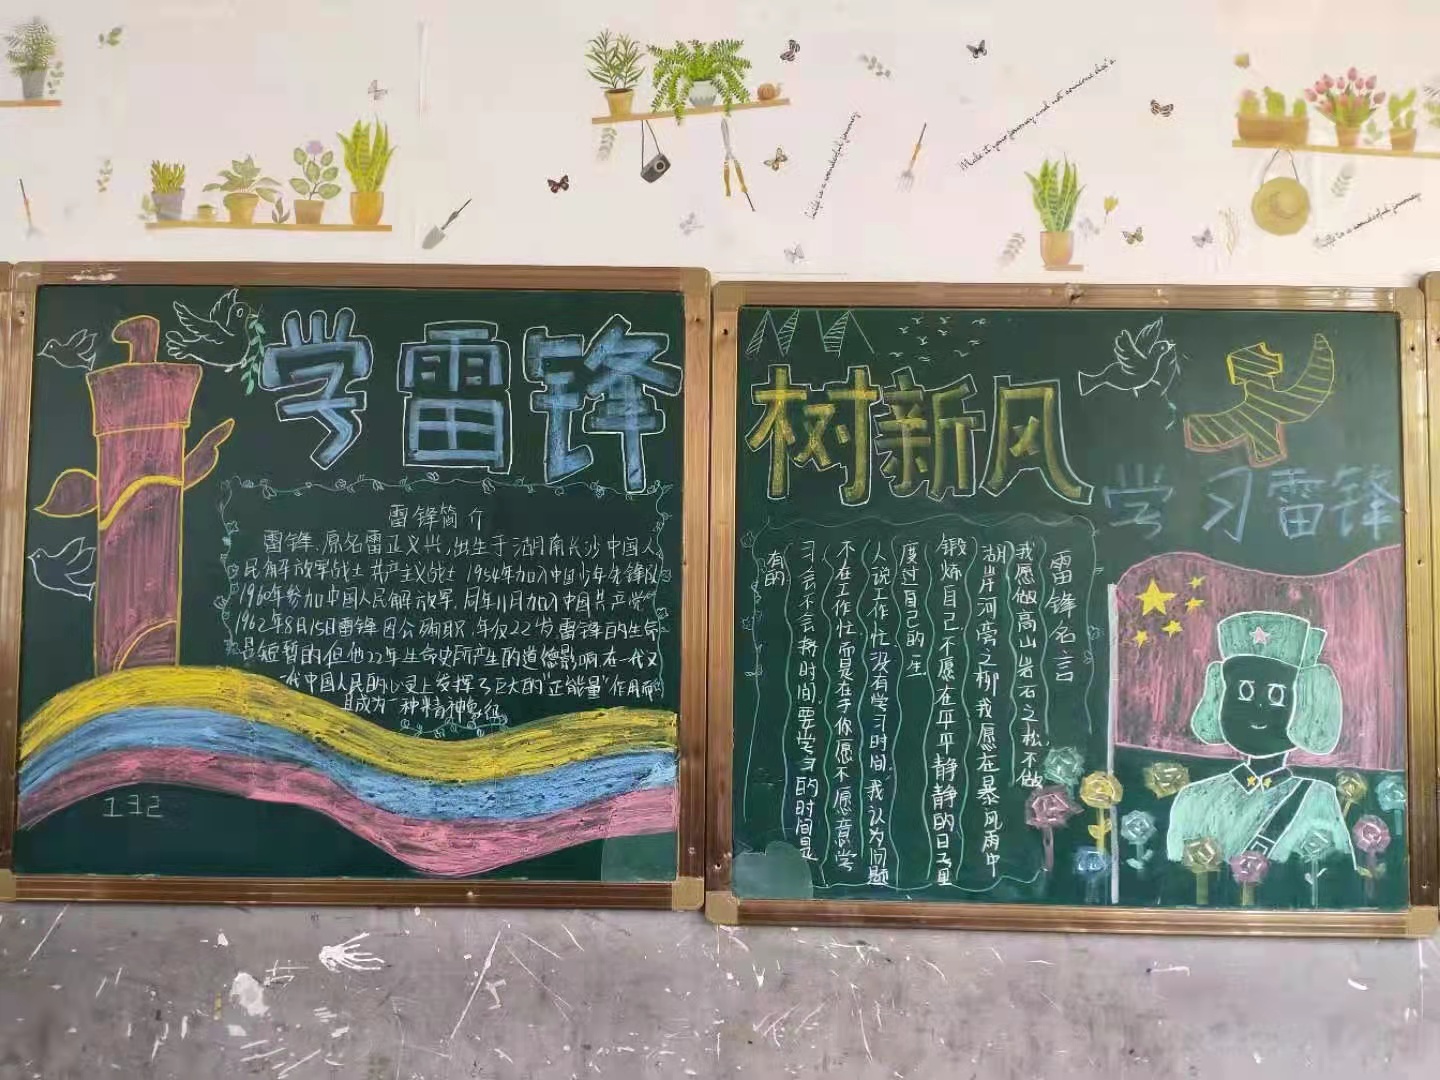 Life is a wonderful journey
Make it your journey and not someone else's
Life is a wonderful journey
学雷锋
雷锋简介
雷锋,原名雷正义兴,出生于湖南长沙中国人
民解放军战士共产主义战士 1954年加入中国少年先锋队
1960年参加中国人民解放军,同年11月加入中国共产党
1962年8月15日雷锋因公殉职,年仅22岁,雷锋的生命
是短暂的但他22年生命史所产生的道德影响在一代又
一代中国人民的心灵上发挥了巨大的"正能量"作用而
且成为一种精神象征
132
树新风
学习雷锋
雷锋名言
我愿做高山岩石之松,不做
湖岸河旁之柳,我愿在暴风雨中
锻炼自己不愿在平平静静的日子里
度过自己的一生
人说工作忙没有学习时间,我认为问题
不在工作忙而是在于你愿不愿意学
习会不会挤时间,要学习的时间是
有的